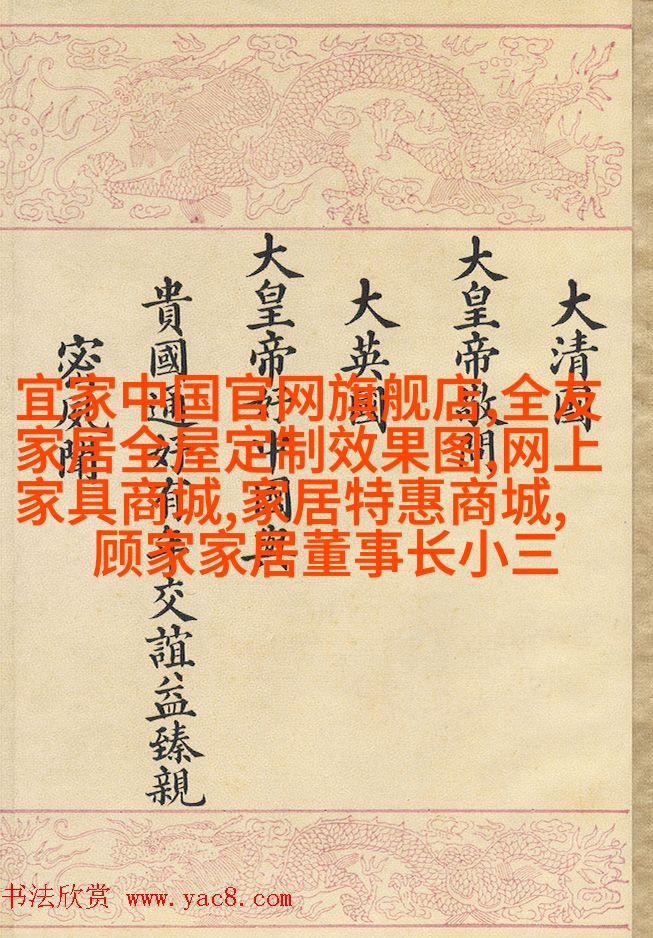 大清國
大皇帝敬問
大英國
大皇帝好中國與
貴國通好有年交誼益臻親
密夙聞
宜家中国官网旗舰店,全友
家居全屋定制效果图,网上
家具商城,家居特惠商城,
顾家家居董事长小三
书法欣赏 www.yac8.com